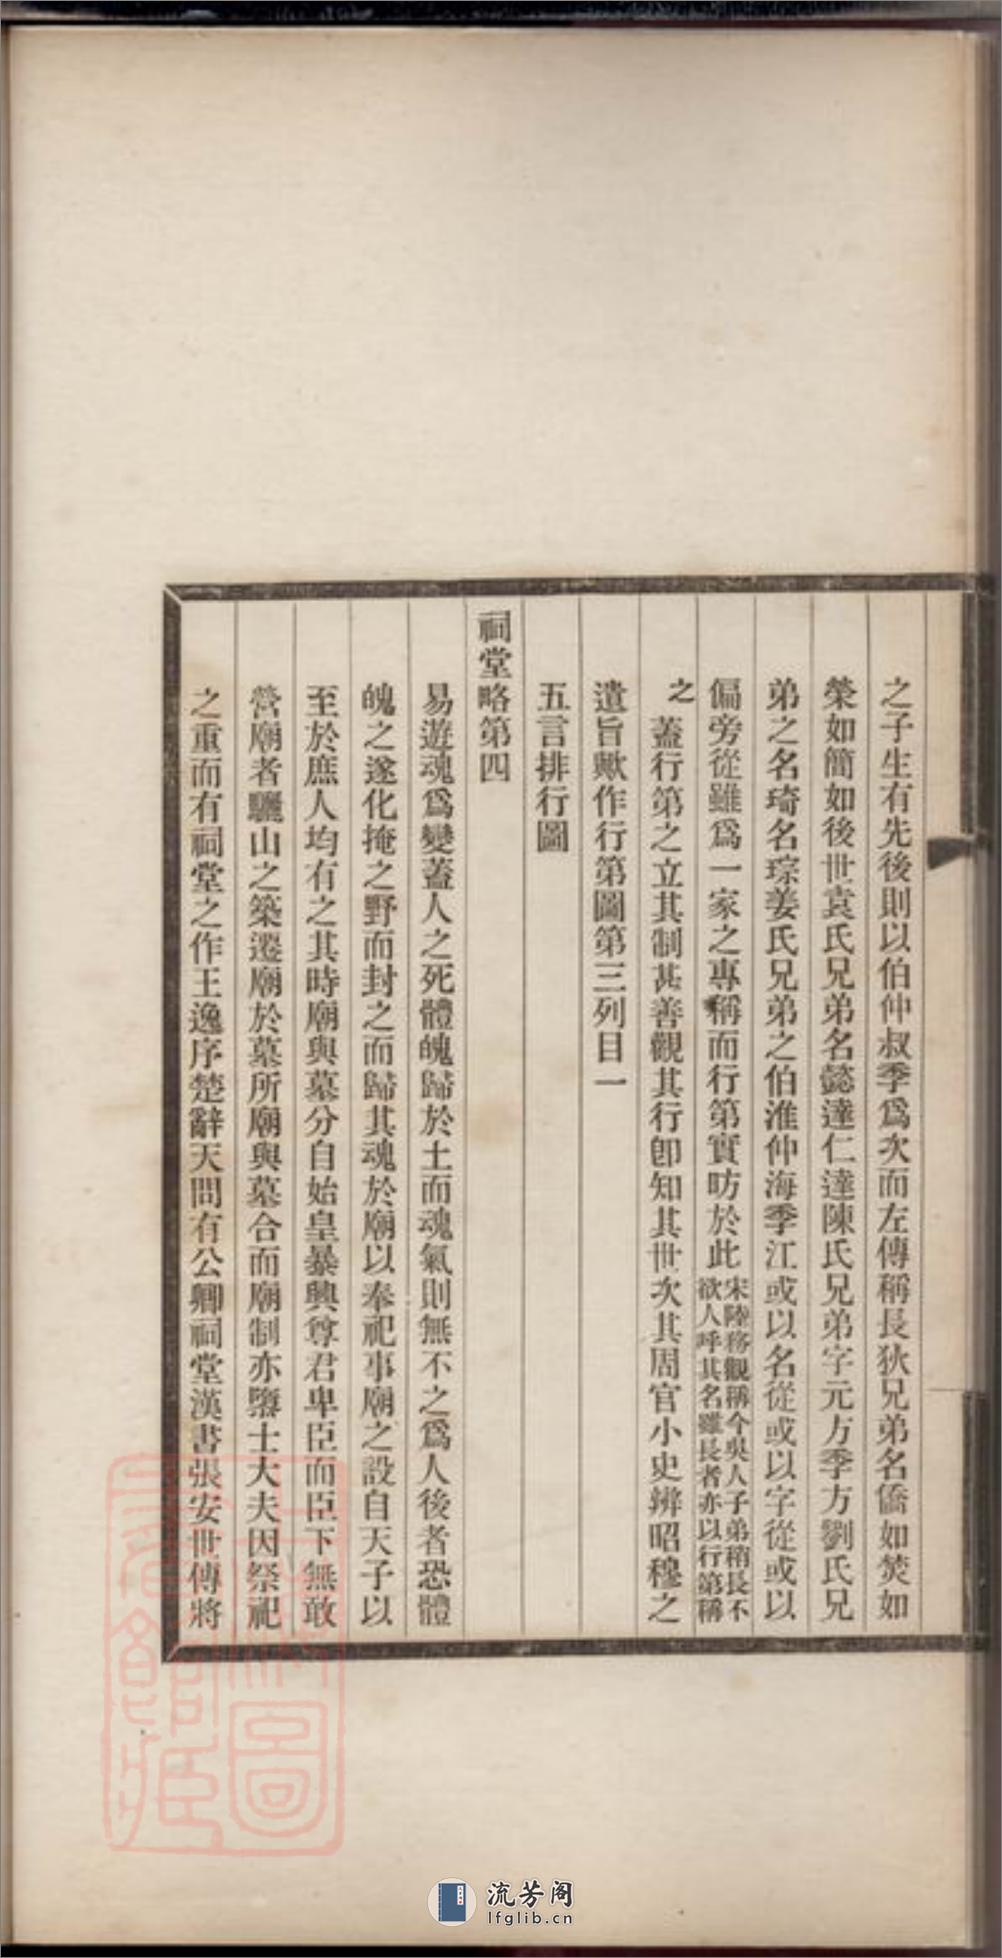 之子生有先後則以伯仲叔季爲次而左傳稱長狄兄弟名僑如焚如
榮如簡如後世袁氏兄弟名懿達仁達陳氏兄弟字元方季方劉氏兄
弟之名琦名琮姜氏兄弟之伯淮仲海季江或以名從或以字從或以
偏旁從雖爲一家之專稱而行第實昉於此宋陸務觀稱今吳人子弟稍長不
欲人呼其名雖長者亦以行第稱
之蓋行第之立其制甚善觀其行卽知其世次其周官小史辨昭穆之
遺旨歟作行第圖第三列目一
五言排行圖
祠堂略第四
易遊魂爲變蓋人之死體魄歸於土而魂氣則無不之爲人後者恐體
魄之遂化掩之野而封之而歸其魂於廟以奉祀事廟之設自天子以
至於庶人均有之其時廟與墓分自始皇暴興尊君卑臣而臣下無敢
營廟者驪山之築遷廟於墓所廟與墓合而廟制亦隳士大夫因祭祀
之重而有祠堂之作王逸序楚辭天問有公卿祠堂漢書張安世傳將
流芳阁
lfglib.cn